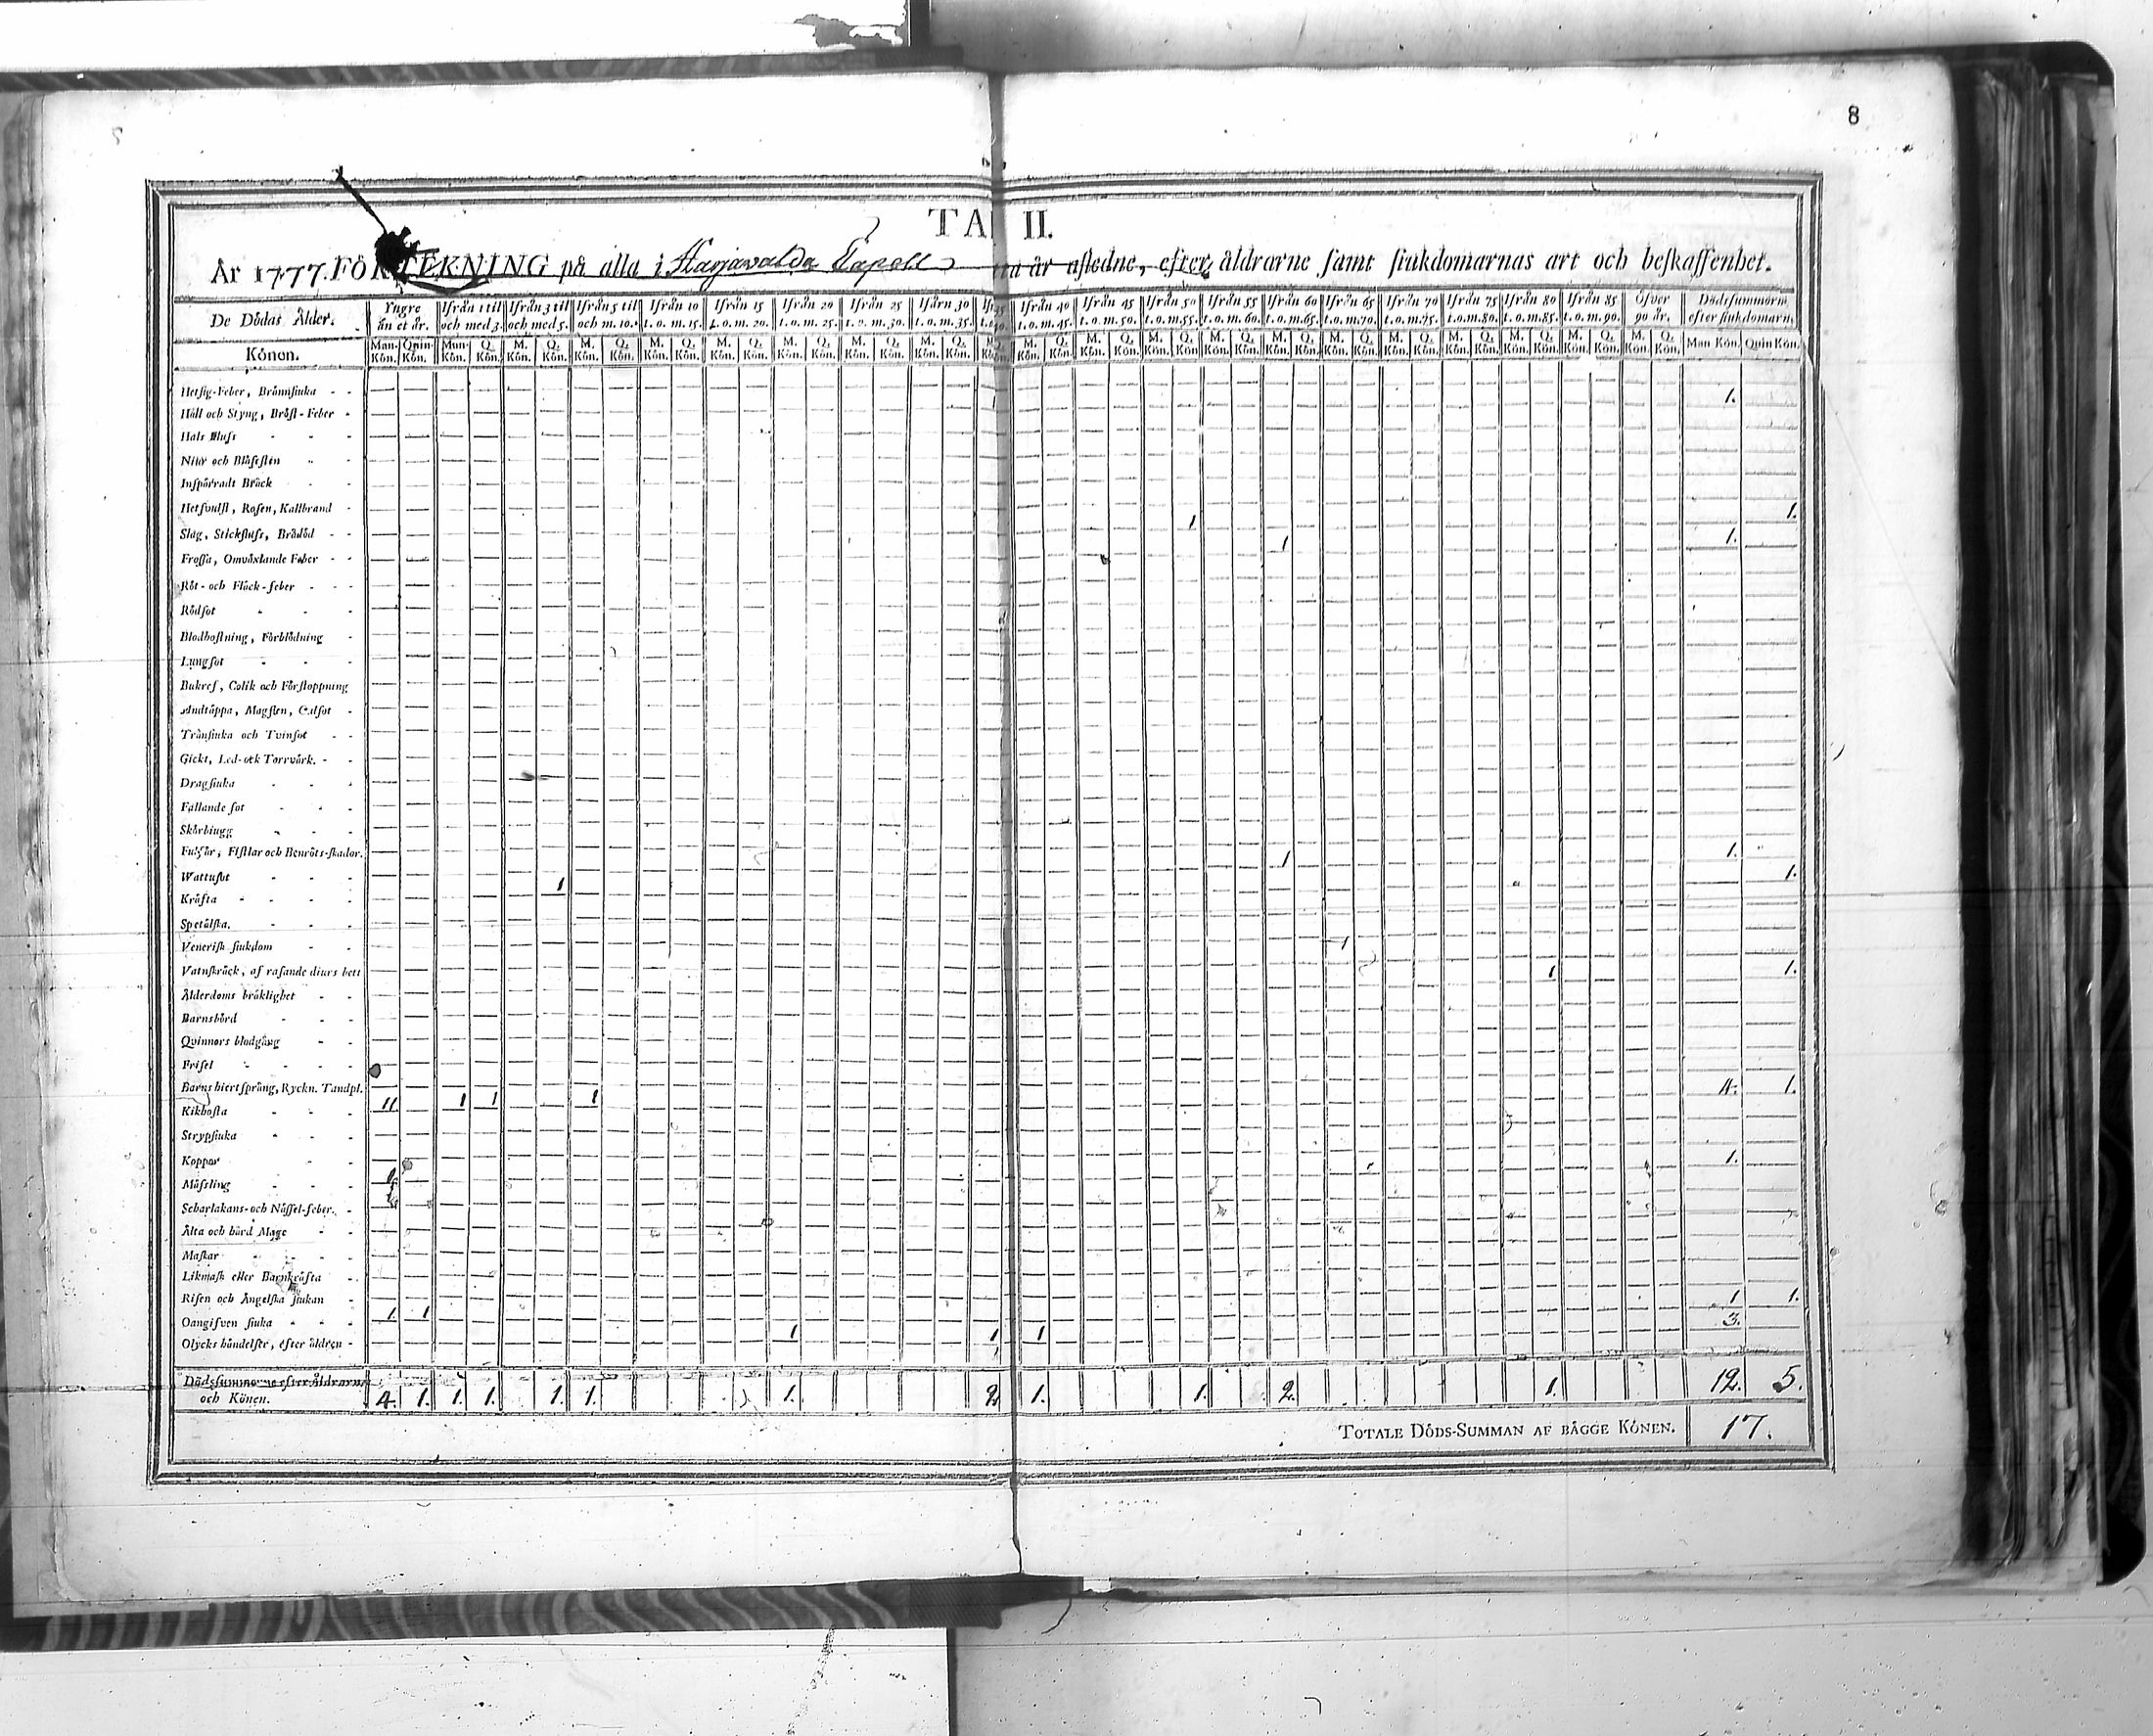 8
TA II.
År 1777. FÖRTEKNING på alla i Harjavalda Capell år afledne, efter åldrarne samt siukdomarnas art och beskaffenhet.
De Dödas Ålder. Yngre än et år. Ifrån 1 til och med 3. Ifrån 3 til och med 5. Ifrån 5 til och m. 10. Ifrån 10 t. o. m. 15. Ifrån 15 t. o. m. 20. Ifrån 20 t. o. m. 25. Ifrån 25 t. o. m. 30. Ifårn 30 t. o. m. 35. Ifrån 40 t. o. m. 45. Ifrån 45 t. o. m. 50. Ifrån 50 t. o. m. 55. Ifrån 55 t. o. m. 60. Ifrån 60 t. o. m. 65. Ifrån 65 t. o. m. 70. Ifrån 70 t. o. m. 75. Ifrån 75 t. o. m. 80. Ifrån 80 t. o. m. 85. Ifrån 85 t. o. m. 90. Öfver 90 år. Dödssummorn. efter siukdomarn.
Könen. Man. Kön. Qvin. Kön. Man. Kön. Q. Kön. M. Kön. Q. Kön. M. Kön. Q. Kön. M. Kön. Q. Kön. M. Kön. Q. Kön. M. Kön. Q. Kön. M. Kön. Q. Kön. M. Kön. Q. Kön. M. Kön. Q. Kön. M. Kön. Q. Kön. M. Kön. Q. Kön. M. Kön. Q. Kön. M. Kön. Q. Kön. M. Kön. Q. Kön. M. Kön. Q. Kön. M. Kön. Q. Kön. M. Kön. Q. Kön. M. Kön. Q. Kön. M. Kön. Q. Kön. Man Kön. Quin Kön.
Hetsig-Feber, Brännsiuka 1.
Håll och Styng, Bröst-Feber
Hals Fluss
Niur och Blåsesten
Inspärradt Bråck
Hetsvulst, Rosen, Kallbrand 1 1.
Slag, Stickfluss, Brådöd 1 1.
Frossa, Omväxlande Feber
Röt- och Fläck-feber
Rödsot
Blodhostning, Förblödning
Lungsot
Bukref, Colik och Förstoppning
Andtäppa, Magsten, Gulsot
Trånsiuka och Tvinsot
Gickt, Led- ock Torrvärk.
Dragsiuka
Fallande sot
Skörbiugg
Fulsår, Fistlar och Benröts-skador. 1 1.
Wattusot 1 1.
Kräfta
Spetälska.
Venerisk siukdom 1
Vatuskräck, af rasande diurs bett 1 1.
Ålderdoms bräklighet
Barnsbörd
Qvinnors blodgång
Frisel
Barns hiertsprång, Ryckn. Tandpl. 4. 1.
Kikhosta 11 1 1 1
Strypsiuka
Koppor 1.
Mässling 1
Scharlakans- och Nässel-feber.
Älta och hård Mage
Maskar
Likmask eller Barnkräfta
Risen och Ängelska siukan 1 1.
Oangifven siuka 1. 1 3.
Olycks händelser, efter åldren 1 1 1
Dödssummorne efter Åldrarna och Könen. 4. 1. 1. 1. 1. 1. 1. 2. 1. 1. 2. 1. 12. 5.
TOTALE DÖDS-SUMMAN AF BÄGGE KÖNEN. 17.